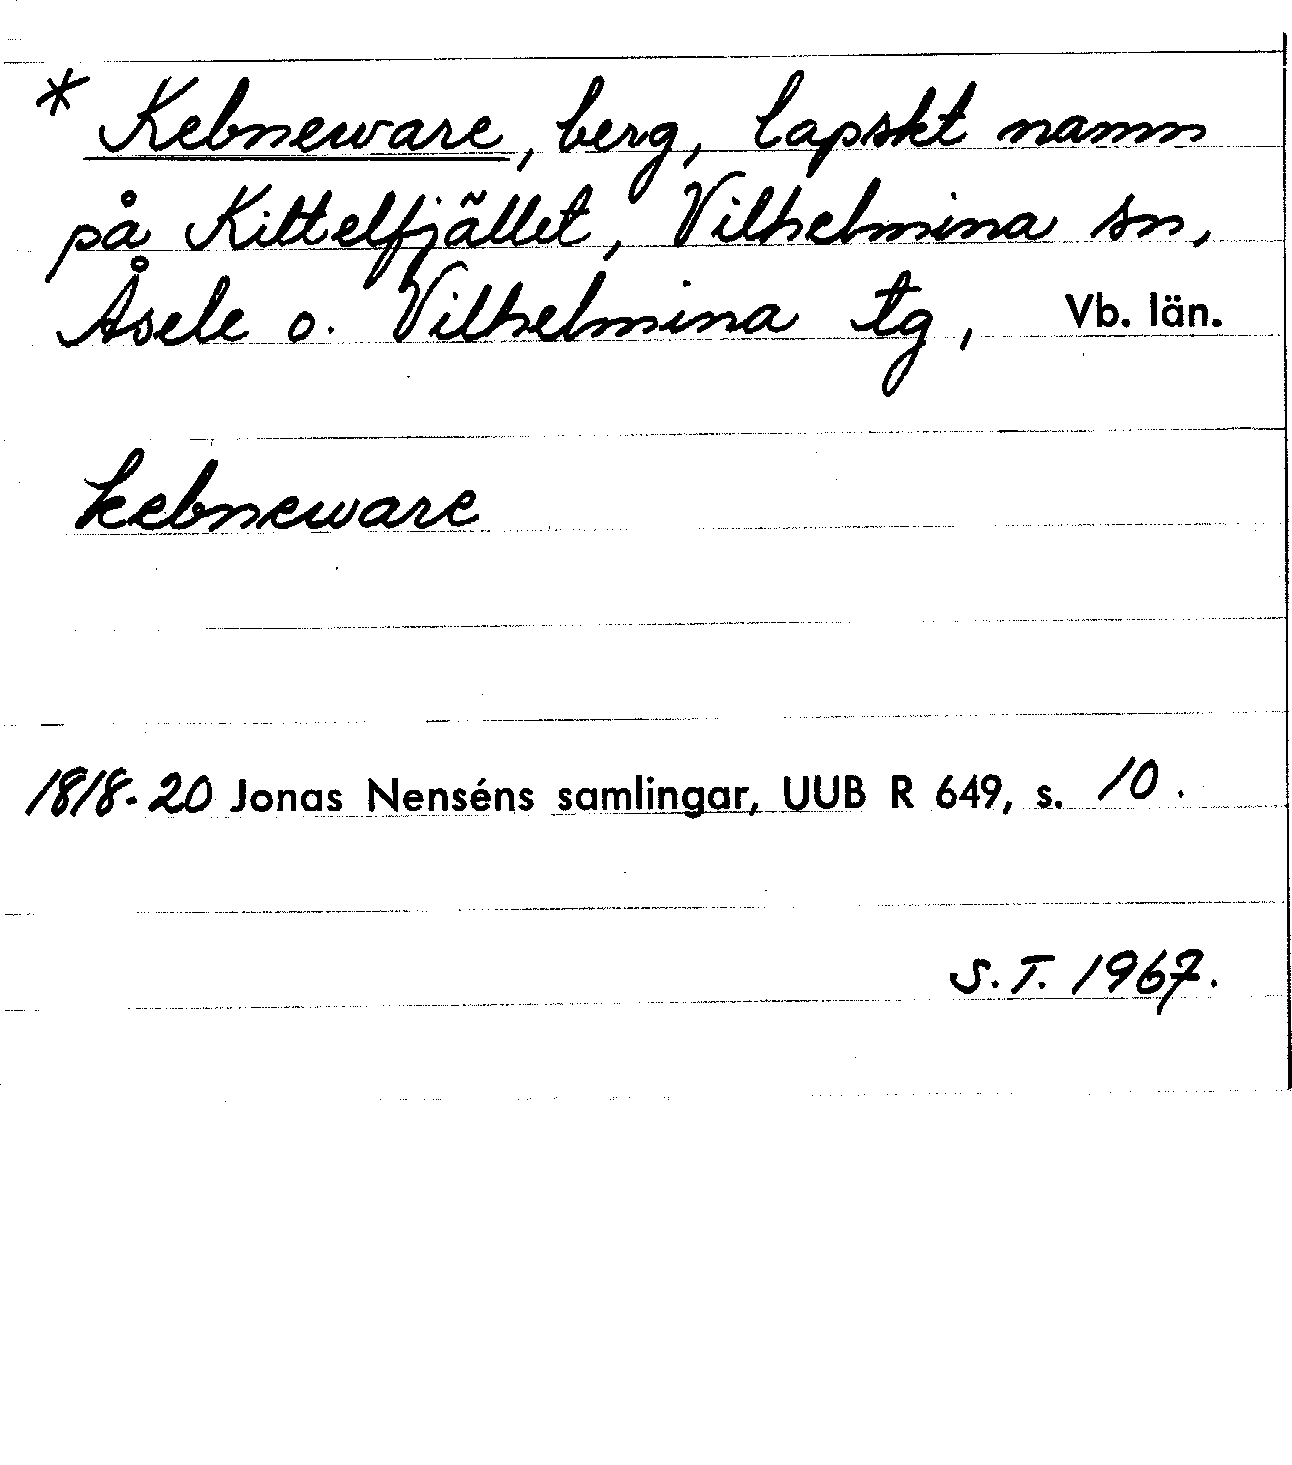 * Kebneware, berg, lapskt namn
på Kittelfjället, Vilhelmina sn,
Åsele o. Vilhelmina tg, Vb. län.
kebneware
1818-20 Jonas Nenséns samlingar, UUB R 649, s. 10.
S.T. 1967.